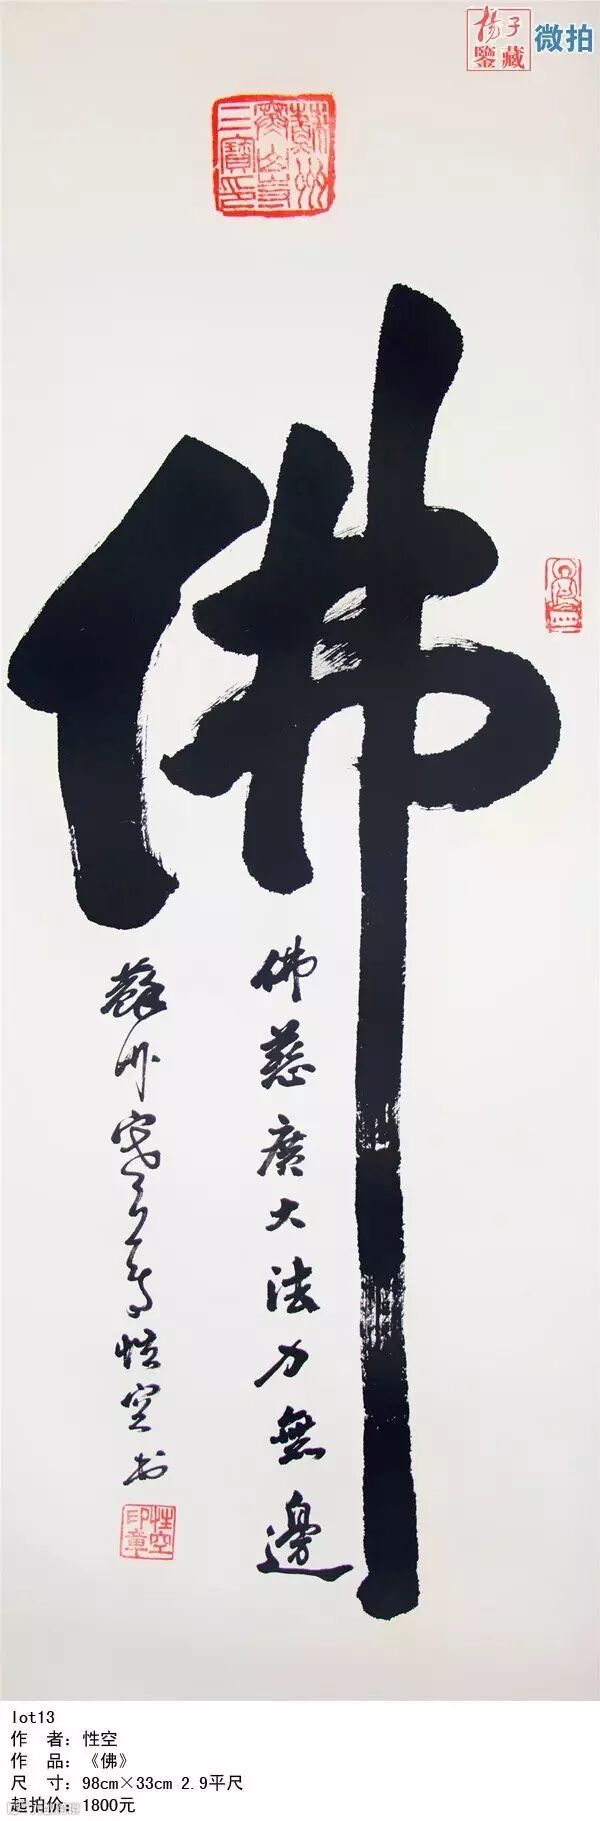 揚子
鑒藏
微拍
蘇州
寒山寺
三寶印
佛
佛慈廣大法力無邊
蘇州寒山寺性空書
性空
印章
lot13
作 者：性空
作 品：《佛》
尺 寸：98cm×33cm 2.9平尺
起拍价：1800元